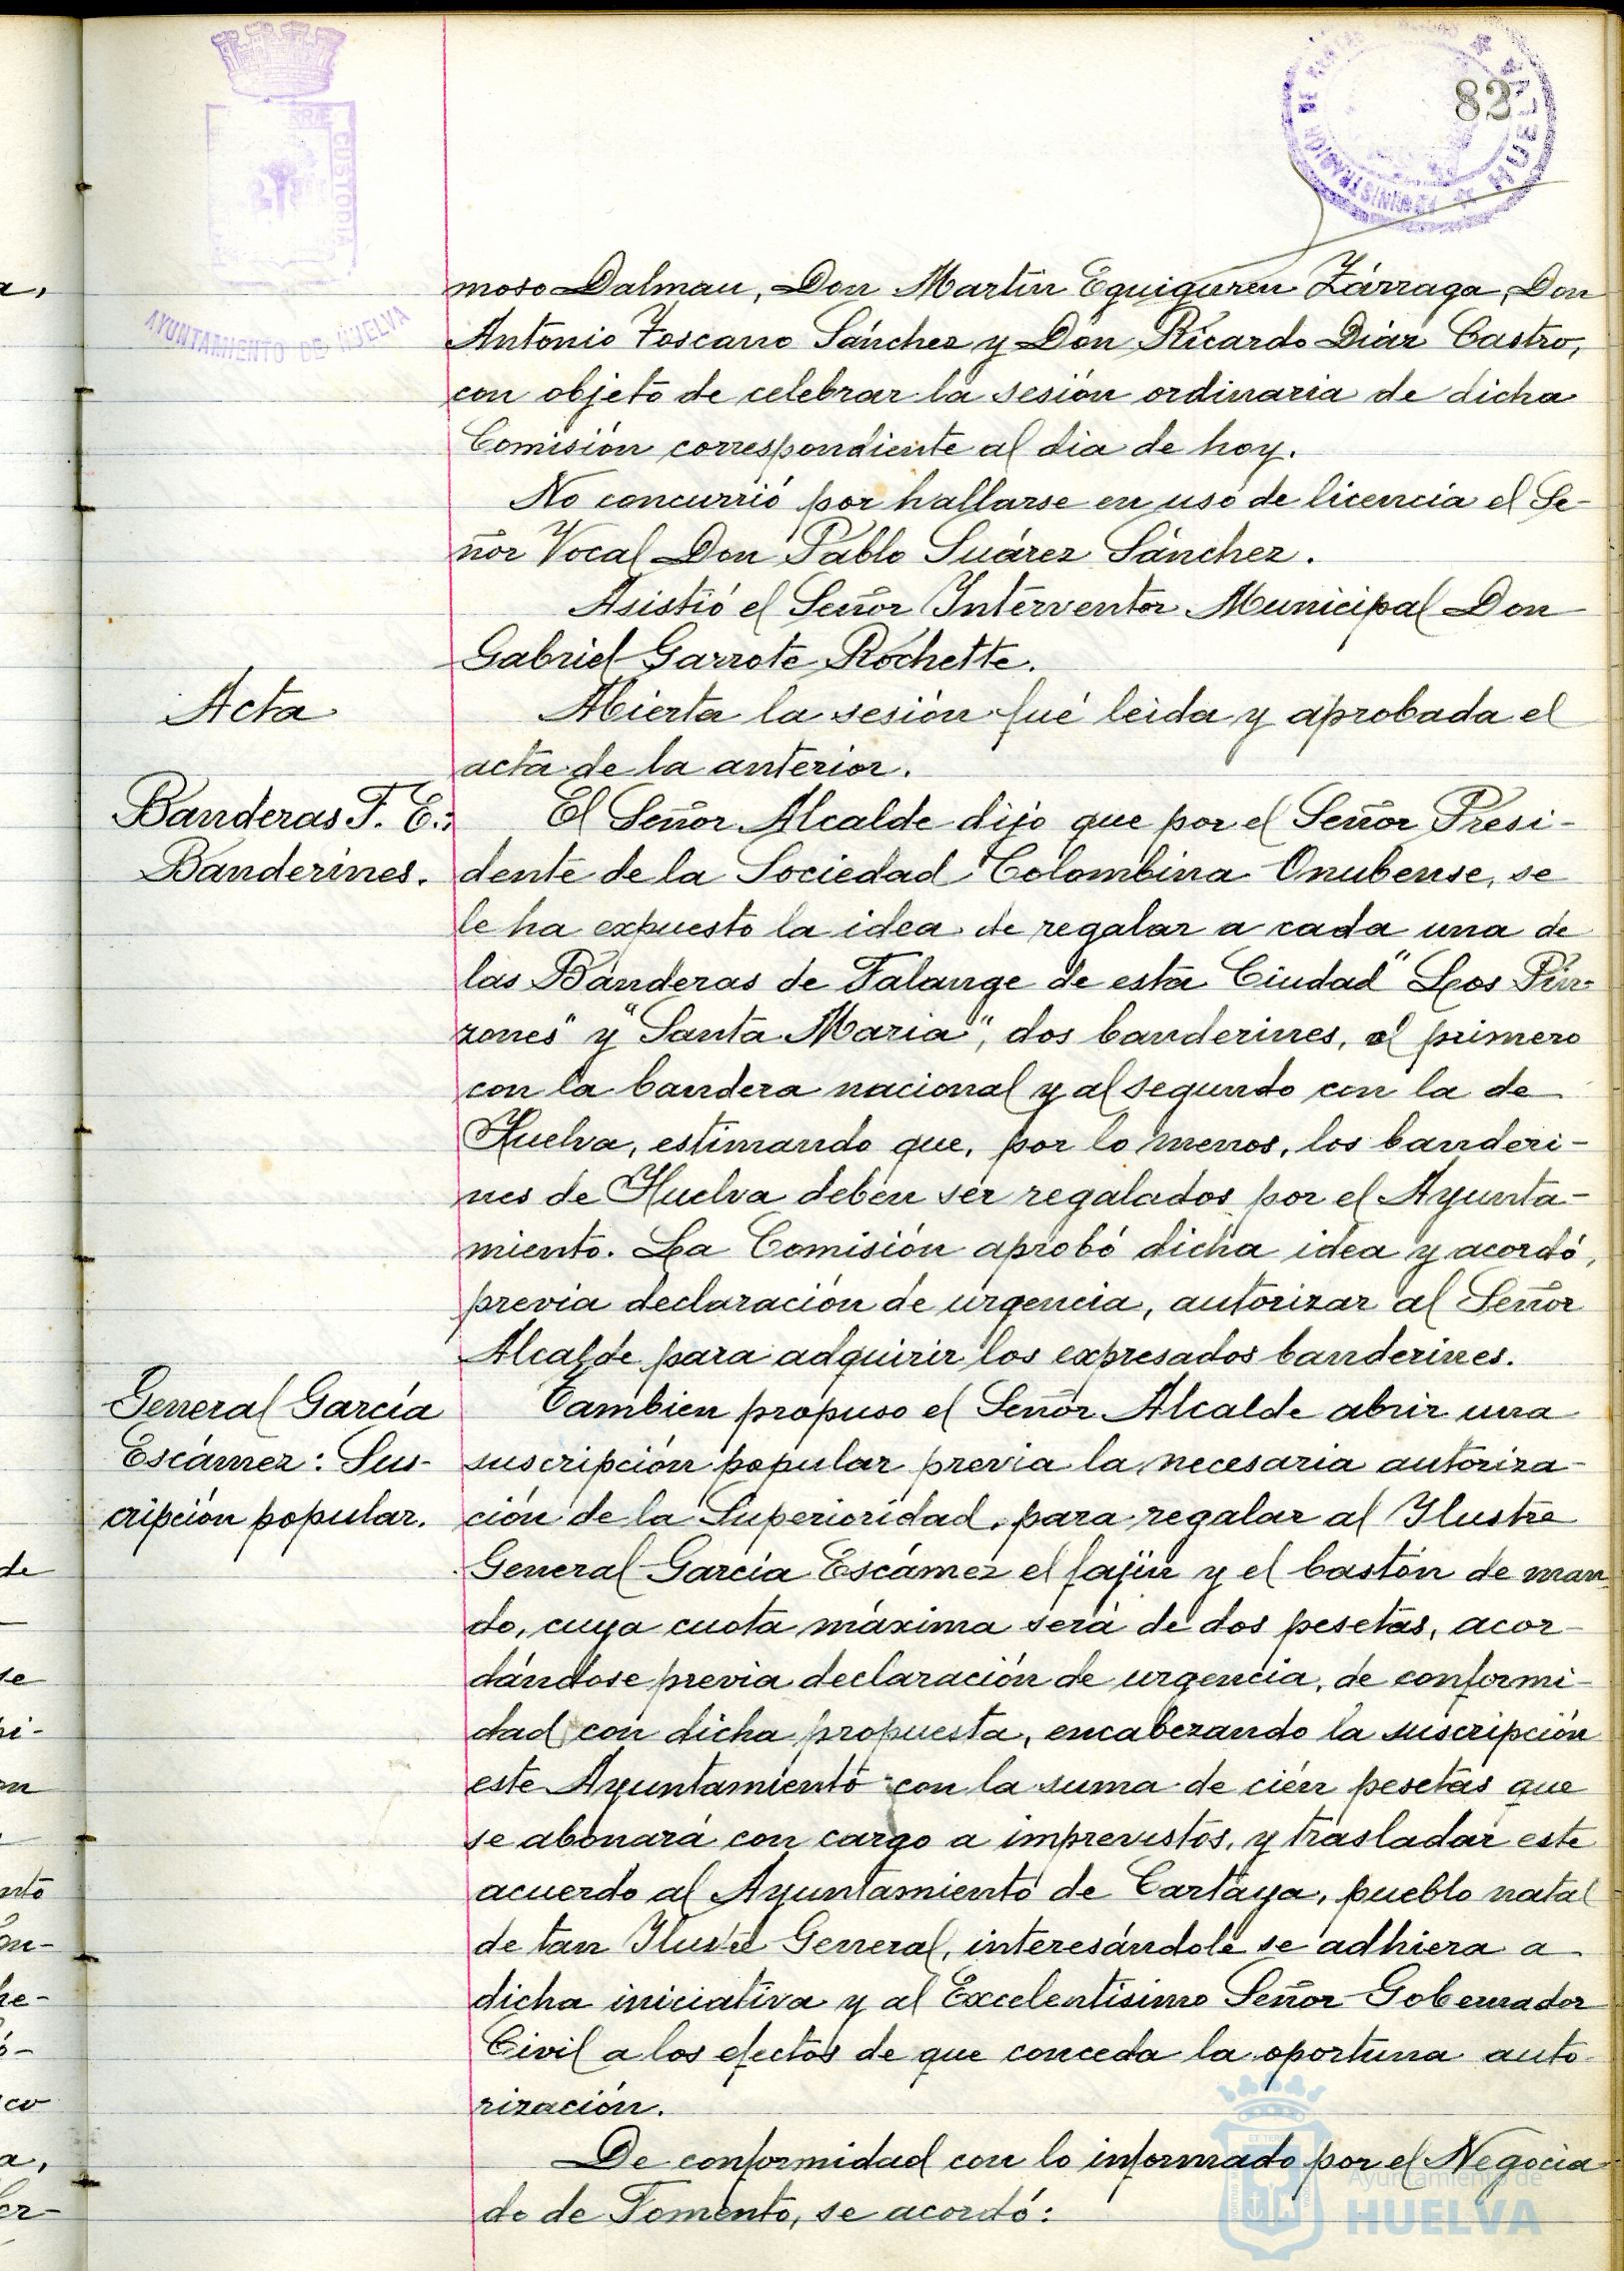 82
AYUNTAMIENTO DE HUELVA
CUSTODIA
ADMINISTRACION DE
HUELVA
moso Dalmau, Don Martin Eguiguren Zárraga, Don
Antonio Toscano Sánchez y Don Ricardo Diáz Castro,
con objeto de celebrar la sesión ordinaria de dicha
Comisión correspondiente al dia de hoy.
No concurrió por hallarse en uso de licencia el Se-
ñor Vocal Don Pablo Suárez Sánchez.
Asistió el Señor Interventor Municipal Don
Gabriel Garrote Rochette.
Acta
Abierta la sesión fué leida y aprobada el
acta de la anterior.
Banderas F. E.:
Banderines.
El Señor Alcalde dijo que por el Señor Presi-
dente de la Sociedad Colombina Onubense, se
le ha expuesto la idea de regalar a cada una de
las Banderas de Falange de esta Ciudad "Los Pin-
zones" y "Santa Maria", dos banderines, al primero
con la bandera nacional y al segundo con la de
Huelva, estimando que, por lo menos, los banderi-
nes de Huelva deben ser regalados por el Ayunta-
miento. La Comisión aprobó dicha idea y acordó,
previa declaración de urgencia, autorizar al Señor
Alcalde para adquirir los expresados banderines.
General García
Escámez: Sus-
cripción popular.
Tambien propuso el Señor Alcalde abrir una
suscripción popular previa la necesaria autoriza-
ción de la Superioridad, para regalar al Ilustre
General García Escámez el fajín y el bastón de man
do, cuya cuota máxima será de dos pesetas, acor-
dándose previa declaración de urgencia, de conformi-
dad con dicha propuesta, encabezando la suscripción
este Ayuntamiento con la suma de cién pesetas que
se abonará con cargo a imprevistos, y trasladar este
acuerdo al Ayuntamiento de Cartaya, pueblo natal
de tan Ilustre General, interesándole se adhiera a
dicha iniciativa y al Excelentisimo Señor Gobernador
Civil a los efectos de que conceda la oportuna auto-
rización.
De conformidad con lo informado por el Negocia
do de Fomento, se acordó:
Ayuntamiento de
HUELVA